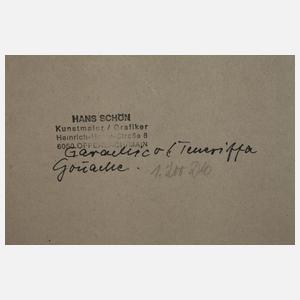 HANS SCHÖN
Kunstmaler / Grafiker
Heinrich- -Straße 8
6050 OFFENBACH/MAIN
Garachico / Teneriffa
Gouache.
1.200 DM